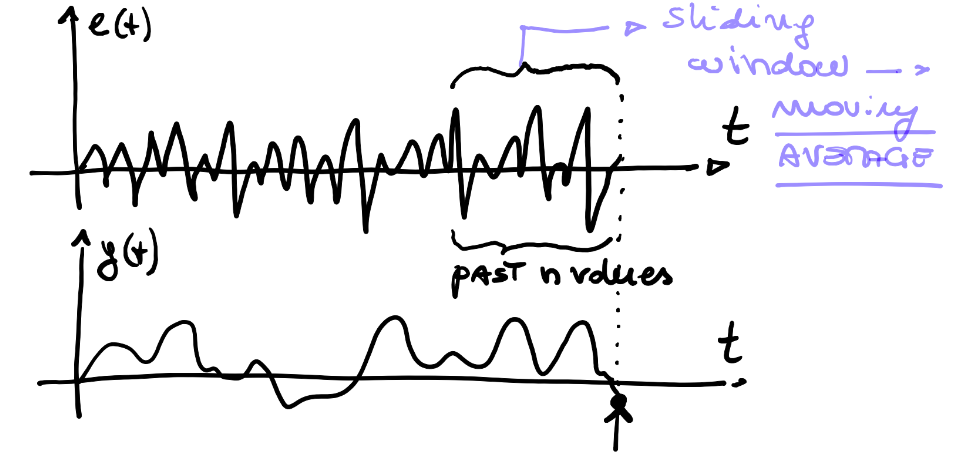 e(t)
sliding
window →
moving
AVERAGE
t
y(t)
PAST n values
t